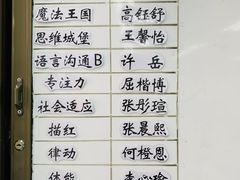 魔法王国 高钰舒
思维城堡 王馨怡
语言沟通B 许岳
专注力 屈楷博
社会适应 张彤瑄
描红 张晨熙
律动 何橙恩
体能